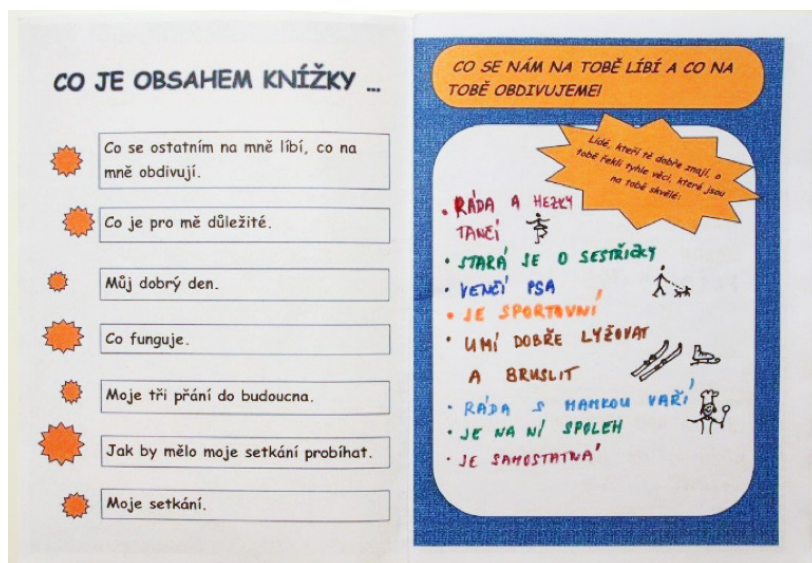 CO JE OBSAHEM KNÍŽKY ...
Co se ostatním na mně líbí, co na
mně obdivují.
Co je pro mě důležité.
Můj dobrý den.
Co funguje.
Moje tři přání do budoucna.
Jak by mělo moje setkání probíhat.
Moje setkání.
CO SE NÁM NA TOBĚ LÍBÍ A CO NA
TOBĚ OBDIVUJEME!
Lidé, kteří tě dobře znají, o
tobě řekli tyhle věci, které jsou
na tobě skvělé:
• RÁDA A HEZKY
TANČÍ
• STARÁ SE O SESTŘIČKY
• VENČÍ PSA
• JE SPORTOVNÍ
• UMÍ DOBŘE LYŽOVAT
A BRUSLIT
• RÁDA S MAMKOU VAŘÍ
• JE NA NÍ SPOLEH
• JE SAMOSTATNÁ